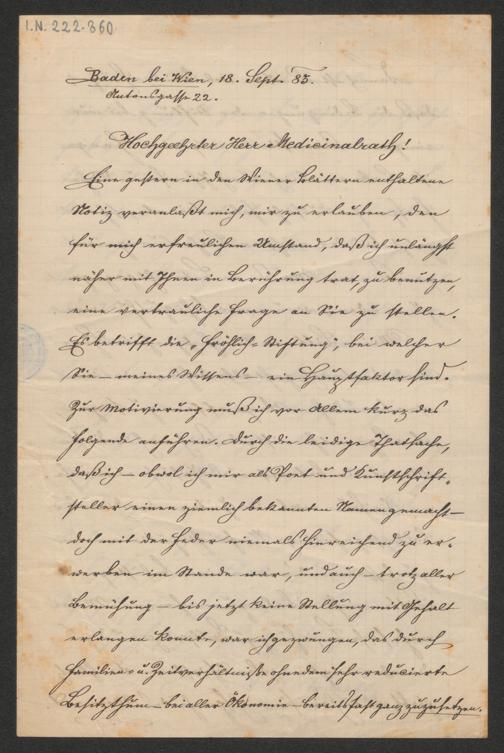 I.N. 222.860
Baden bei Wien, 18. Sept. 85.
Antonsgasse 22.
Hochgeehrter Herr Medicinalrath!
Eine gestern in den Wiener Blättern enthaltene
Notiz veranlaßt mich, mir zu erlauben, den
für mich erfreulichen Umstand, daß ich unlängst
näher mit Ihnen in Berührung trat, zu benutzen,
eine vertrauliche Frage an Sie zu stellen.
Es betrifft die „Fröhlich-Stiftung", bei welcher
Sie – meines Wissens – ein Hauptfaktor sind.
Zur Motivierung muß ich vor Allem kurz das
folgende anführen. Durch die leidige Thatsache,
daß ich – obwol ich mir als Poet und Kunstschrift-
steller einen ziemlich bekannten Namen gemacht –
doch mit der Feder niemals hinreichend zu er-
werben im Stande war, und auch – trotz aller
Bemühung – bis jetzt keine Stellung mit Gehalt
erlangen konnte, war ich gezwungen, das durch
Familien- u. Zeitverhältnisse ohnedem sehr reducierte
Besitzthum – bei aller Ökonomie – bereits fast ganz zuzusetzen.